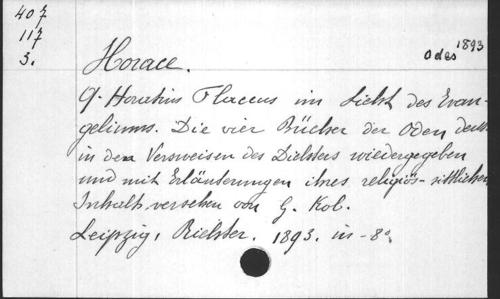 407
117
3.
1893
Odes
Horace.
Q. Horatius Flaccus im Licht des Evan-
geliums. Die vier Bücher der Oden deutsch
in den Versweisen des Dichters wiedergegeben
und mit Erläuterungen ihres religiös-sittlichen
Inhalt versehen von G. Kob.
Leipzig, Richter. 1893. in-8o